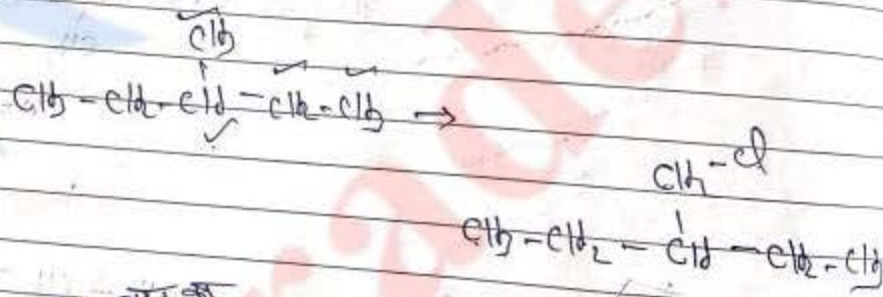 CH3
CH3 - CH2 - CH - CH2 - CH3 →
CH2 - Cl
CH3 - CH2 - CH - CH2 - CH3